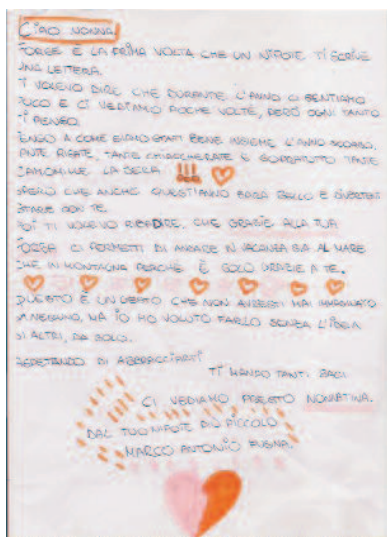 CIAO NONNA
FORSE È LA PRIMA VOLTA CHE UN NIPOTE TI SCRIVE
UNA LETTERA.
TI VOLEVO DIRE CHE DURANTE L'ANNO CI SENTIAMO
POCO E CI VEDIAMO POCHE VOLTE, PERÒ OGNI TANTO
TI PENSO.
PENSO A COME SIAMO STATI BENE INSIEME L'ANNO SCORSO,
TANTE RISATE, TANTE CHIACCHERATE E SOPRATUTTO TANTE
CAMOMILLE LA SERA !!!
SPERO CHE ANCHE QUEST'ANNO SARÀ BELLO E DIVERTENTE
STARE CON TE.
POI TI VOLEVO RIBADIRE, CHE GRAZIE ALLA TUA
FORZA CI PERMETTI DI ANDARE IN VACANZA SIA AL MARE
CHE IN MONTAGNA PERCHÈ È SOLO GRAZIE A TE.
QUESTO È UN GESTO CHE NON AVRESTI MAI IMMAGINATO
DA NESSUNO, MA IO HO VOLUTO FARLO SENZA L'IDEA
DI ALTRI, DA SOLO.
ASPETTANDO DI ABBRACCIARTI
TI MANDO TANTI BACI
CI VEDIAMO PRESTO NONNATINA.
DAL TUO NIPOTE PIÙ PICCOLO
MARCO ANTONIO